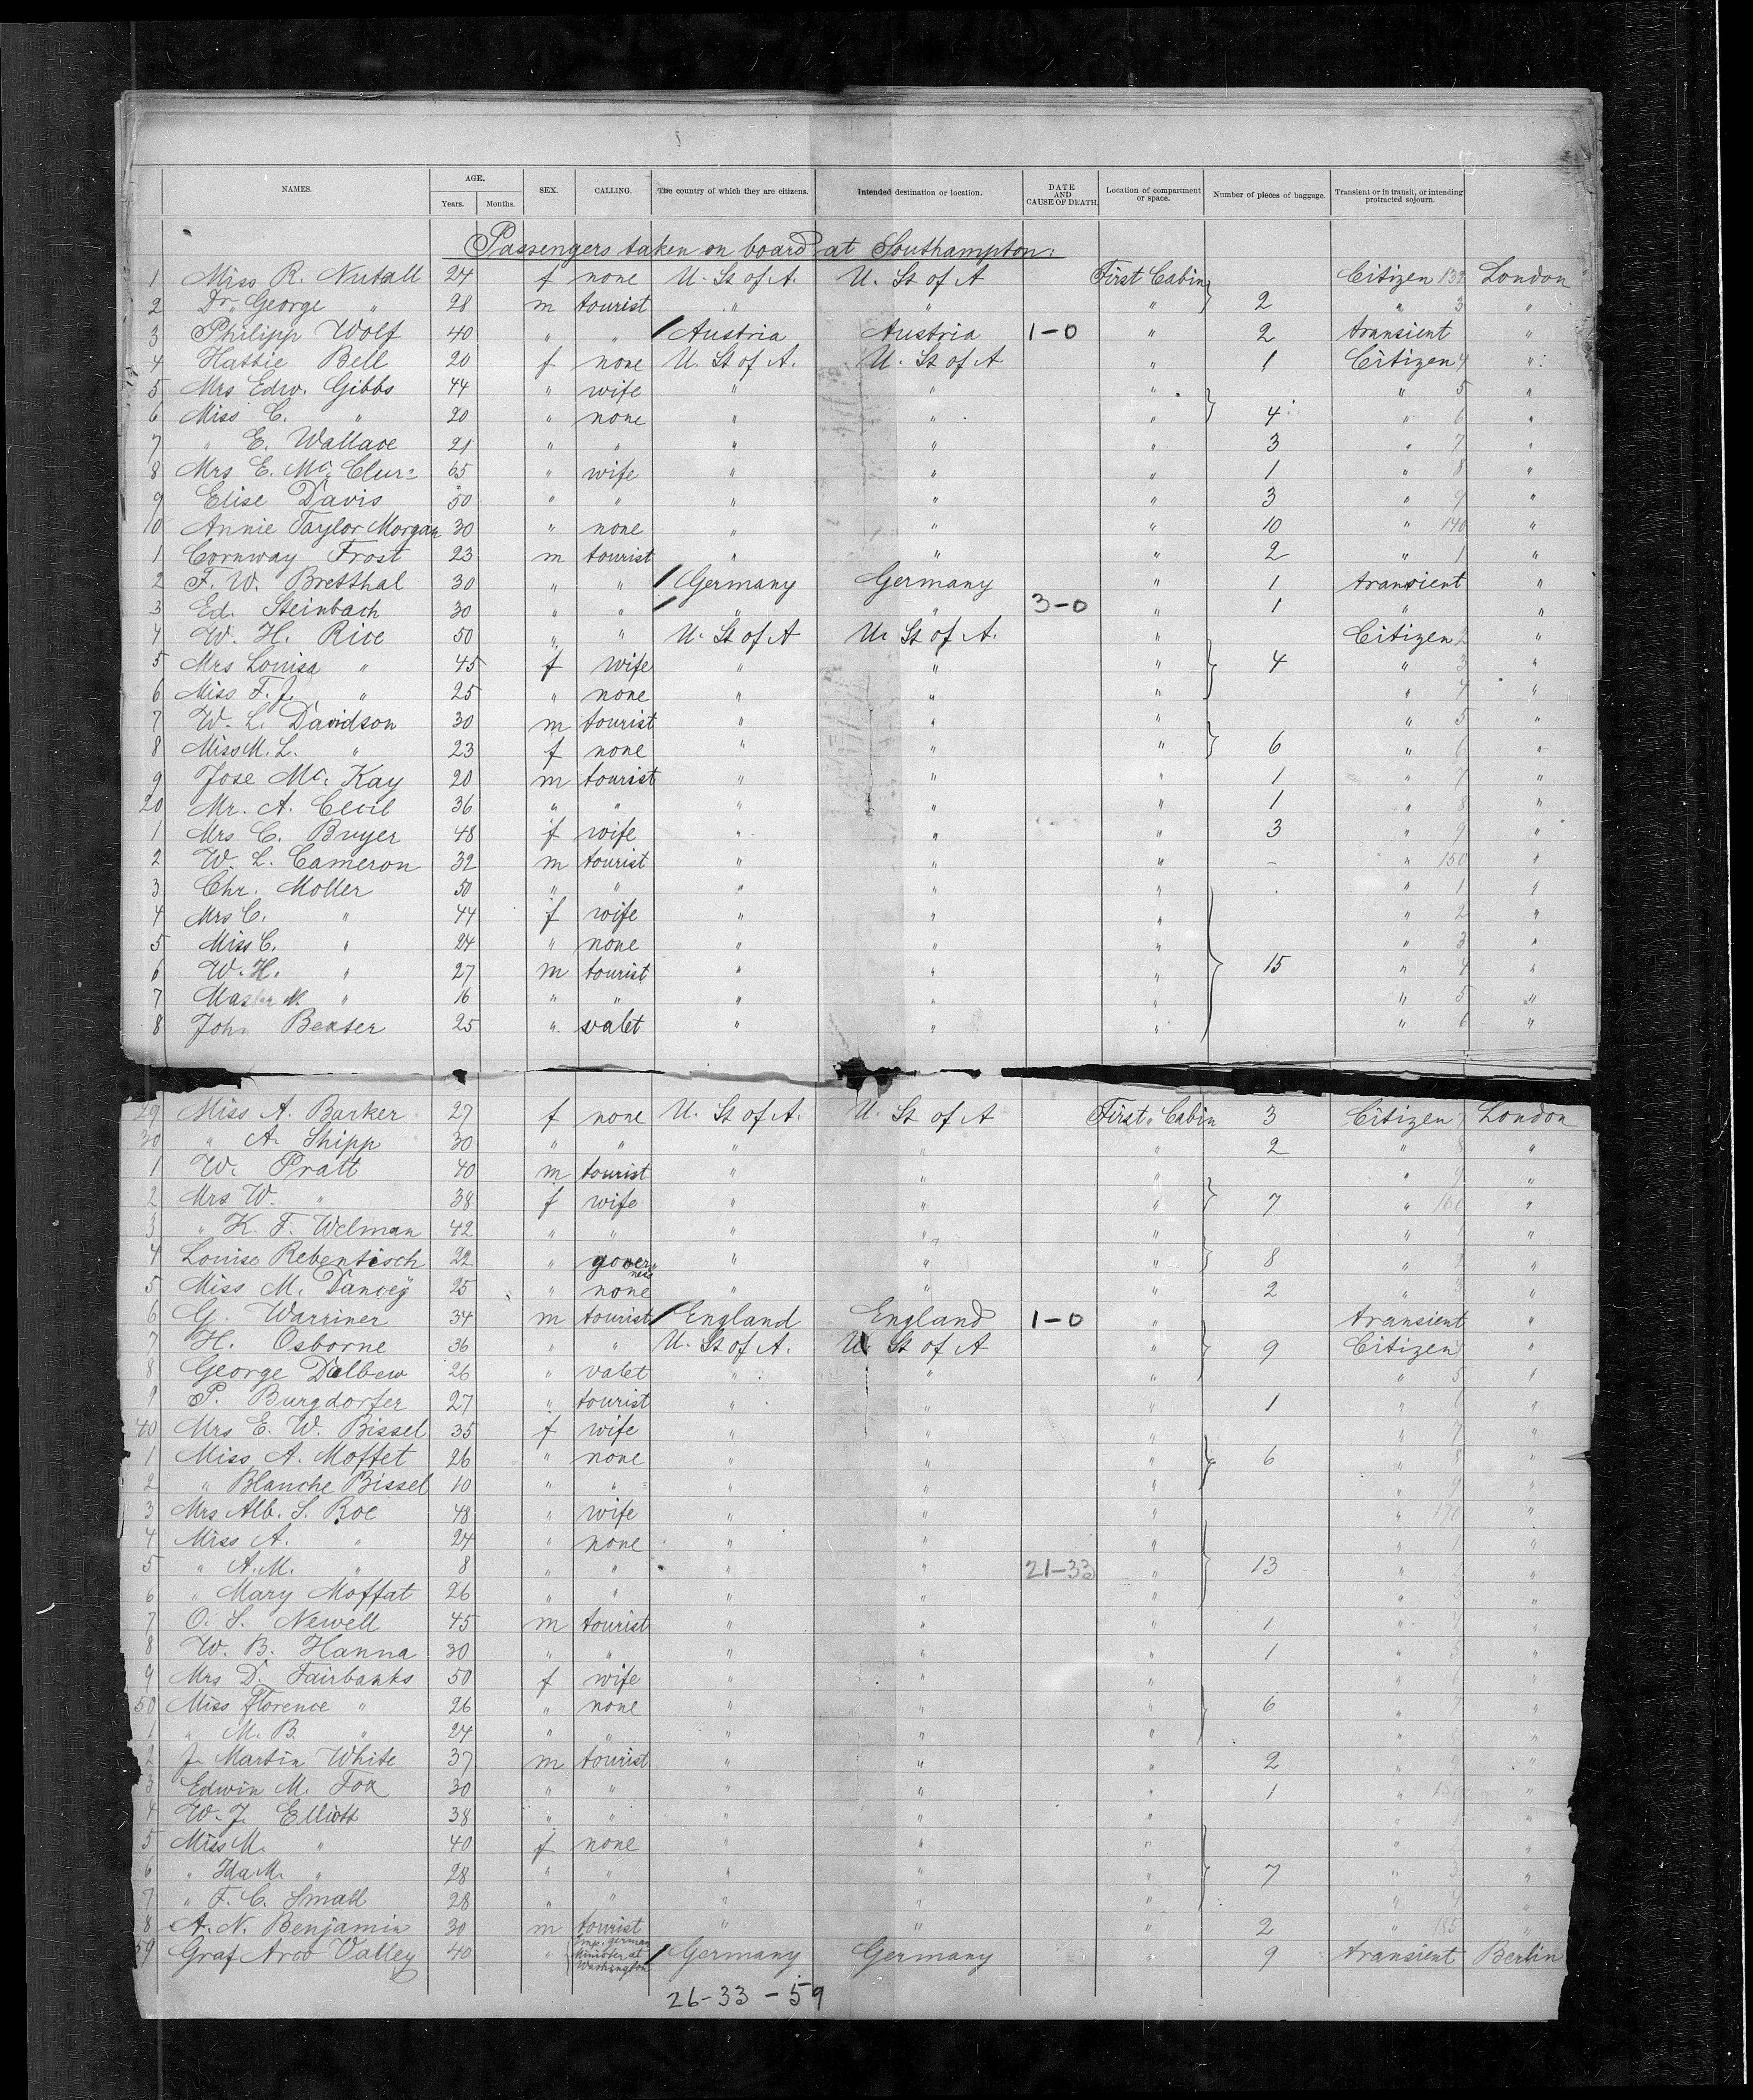 NAMES. AGE. Years. Months. SEX. CALLING. The country of which they are citizens. Intended destination or location. DATE AND CAUSE OF DEATH. Location of compartment or space. Number of pieces of baggage. Transient or in transit, or intending protracted sojourn.
Passengers taken on board at Southampton:
1 Miss R. Nutall 24 f none U. St of A. U. St of A First Cabin Citizen 139 London
2 Dr. George " 28 m tourist " " " 2 " "
3 Philipp Wolf 40 " " Austria Austria 1-0 " 2 transient "
4 Hattie Bell 20 f none U. St of A. U. St of A " 1 Citizen 4 "
5 Mrs Edw. Gibbs 44 " wife " " " " 5 "
6 Miss C. " 20 " none " " " 4 " 6 "
7 " E. Wallace 21 " " " " " 3 " 7 "
8 Mrs E. Mc. Clure 65 " wife " " " 1 " 8 "
9 Elise Davis 50 " " " " " 3 " 9 "
10 Annie Taylor Morgan 30 " none " " " 10 " 140 "
1 Cornway Frost 23 m tourist " " " 2 " 1 "
2 F. W. Bretthal 30 " " Germany Germany " 1 transient "
3 Ed. Steinbach 30 " " " " 3-0 " 1 " "
4 W. H. Rice 50 " " U. St of A U. St of A. " Citizen 2 "
5 Mrs Louisa " 45 f wife " " " 4 " 3 "
6 Miss F. J. " 25 " none " " " " 4 "
7 W. L. Davidson 30 m tourist " " " " 5 "
8 Miss M. L. " 23 f none " " " 6 " 6 "
9 Jose Mc. Kay 20 m tourist " " " 1 " 7 "
20 Mr. A. Cecil 36 " " " " " 1 " 8 "
1 Mrs C. Buyer 48 f wife " " " 3 " 9 "
2 W. L. Cameron 32 m tourist " " " - " 150 "
3 Chr. Moller 50 " " " " " " 1 "
4 Mrs C. " 44 f wife " " " " 2 "
5 Miss C. " 24 " none " " " " 3 "
6 W. H. " 27 m tourist " " " 15 " 4 "
7 Master N. " 16 " " " " " " 5 "
8 John Bexter 25 " valet " " " " 6 "
29 Miss A. Barker 27 f none U. St of A. U. St of A First Cabin 3 Citizen London
30 " A. Shipp 30 " " " " " 2 " 8 "
1 W. Pratt 40 m tourist " " " " 9 "
2 Mrs W. " 38 f wife " " " 7 " 160 "
3 " K. F. Welman 42 " " " " " " 1 "
4 Louise Rebentisch 22 " governess " " " 8 " 2 "
5 Miss M. Dancey 25 " none " " " 2 " 3 "
6 G. Warriner 34 m tourist England England 1-0 " transient "
7 H. Osborne 36 " " U. St of A. U. St of A " 9 Citizen "
8 George Dalbew 26 " valet " " " " 5 "
9 P. Burgdorfer 27 " tourist " " " 1 " 6 "
40 Mrs E. W. Bissel 35 f wife " " " " 7 "
1 Miss A. Moffet 26 " none " " " 6 " 8 "
2 " Blanche Bissel 10 " " " " " " 9 "
3 Mrs Alb. S. Roe 48 " wife " " " " 170 "
4 Miss A. " 24 " none " " " " 1 "
5 " A. M. " 8 " " " " 21-33 " 13 " 2 "
6 " Mary Moffat 26 " " " " " " 3 "
7 O. S. Newell 45 m tourist " " " 1 " 4 "
8 W. B. Hanna 30 " " " " " 1 " 5 "
9 Mrs D. Fairbanks 50 f wife " " " " 6 "
50 Miss Florence " 26 " none " " " 6 " 7 "
1 " M. B. " 24 " " " " " " 8 "
2 J. Martin White 37 m tourist " " " 2 " 9 "
3 Edwin M. Fox 30 " " " " " 1 " 180 "
4 W. J. Elliott 38 " " " " " " 1 "
5 Miss M. " 40 f none " " " " 2 "
6 " Ida M. " 28 " " " " " 7 " 3 "
7 " F. C. Small 28 " " " " " " 4 "
8 A. N. Benjamin 30 m tourist " " " 2 " 185 "
59 Graf Arco Valley 40 " Imp. german Minister at Washington Germany Germany " 9 transient Berlin
26-33-59